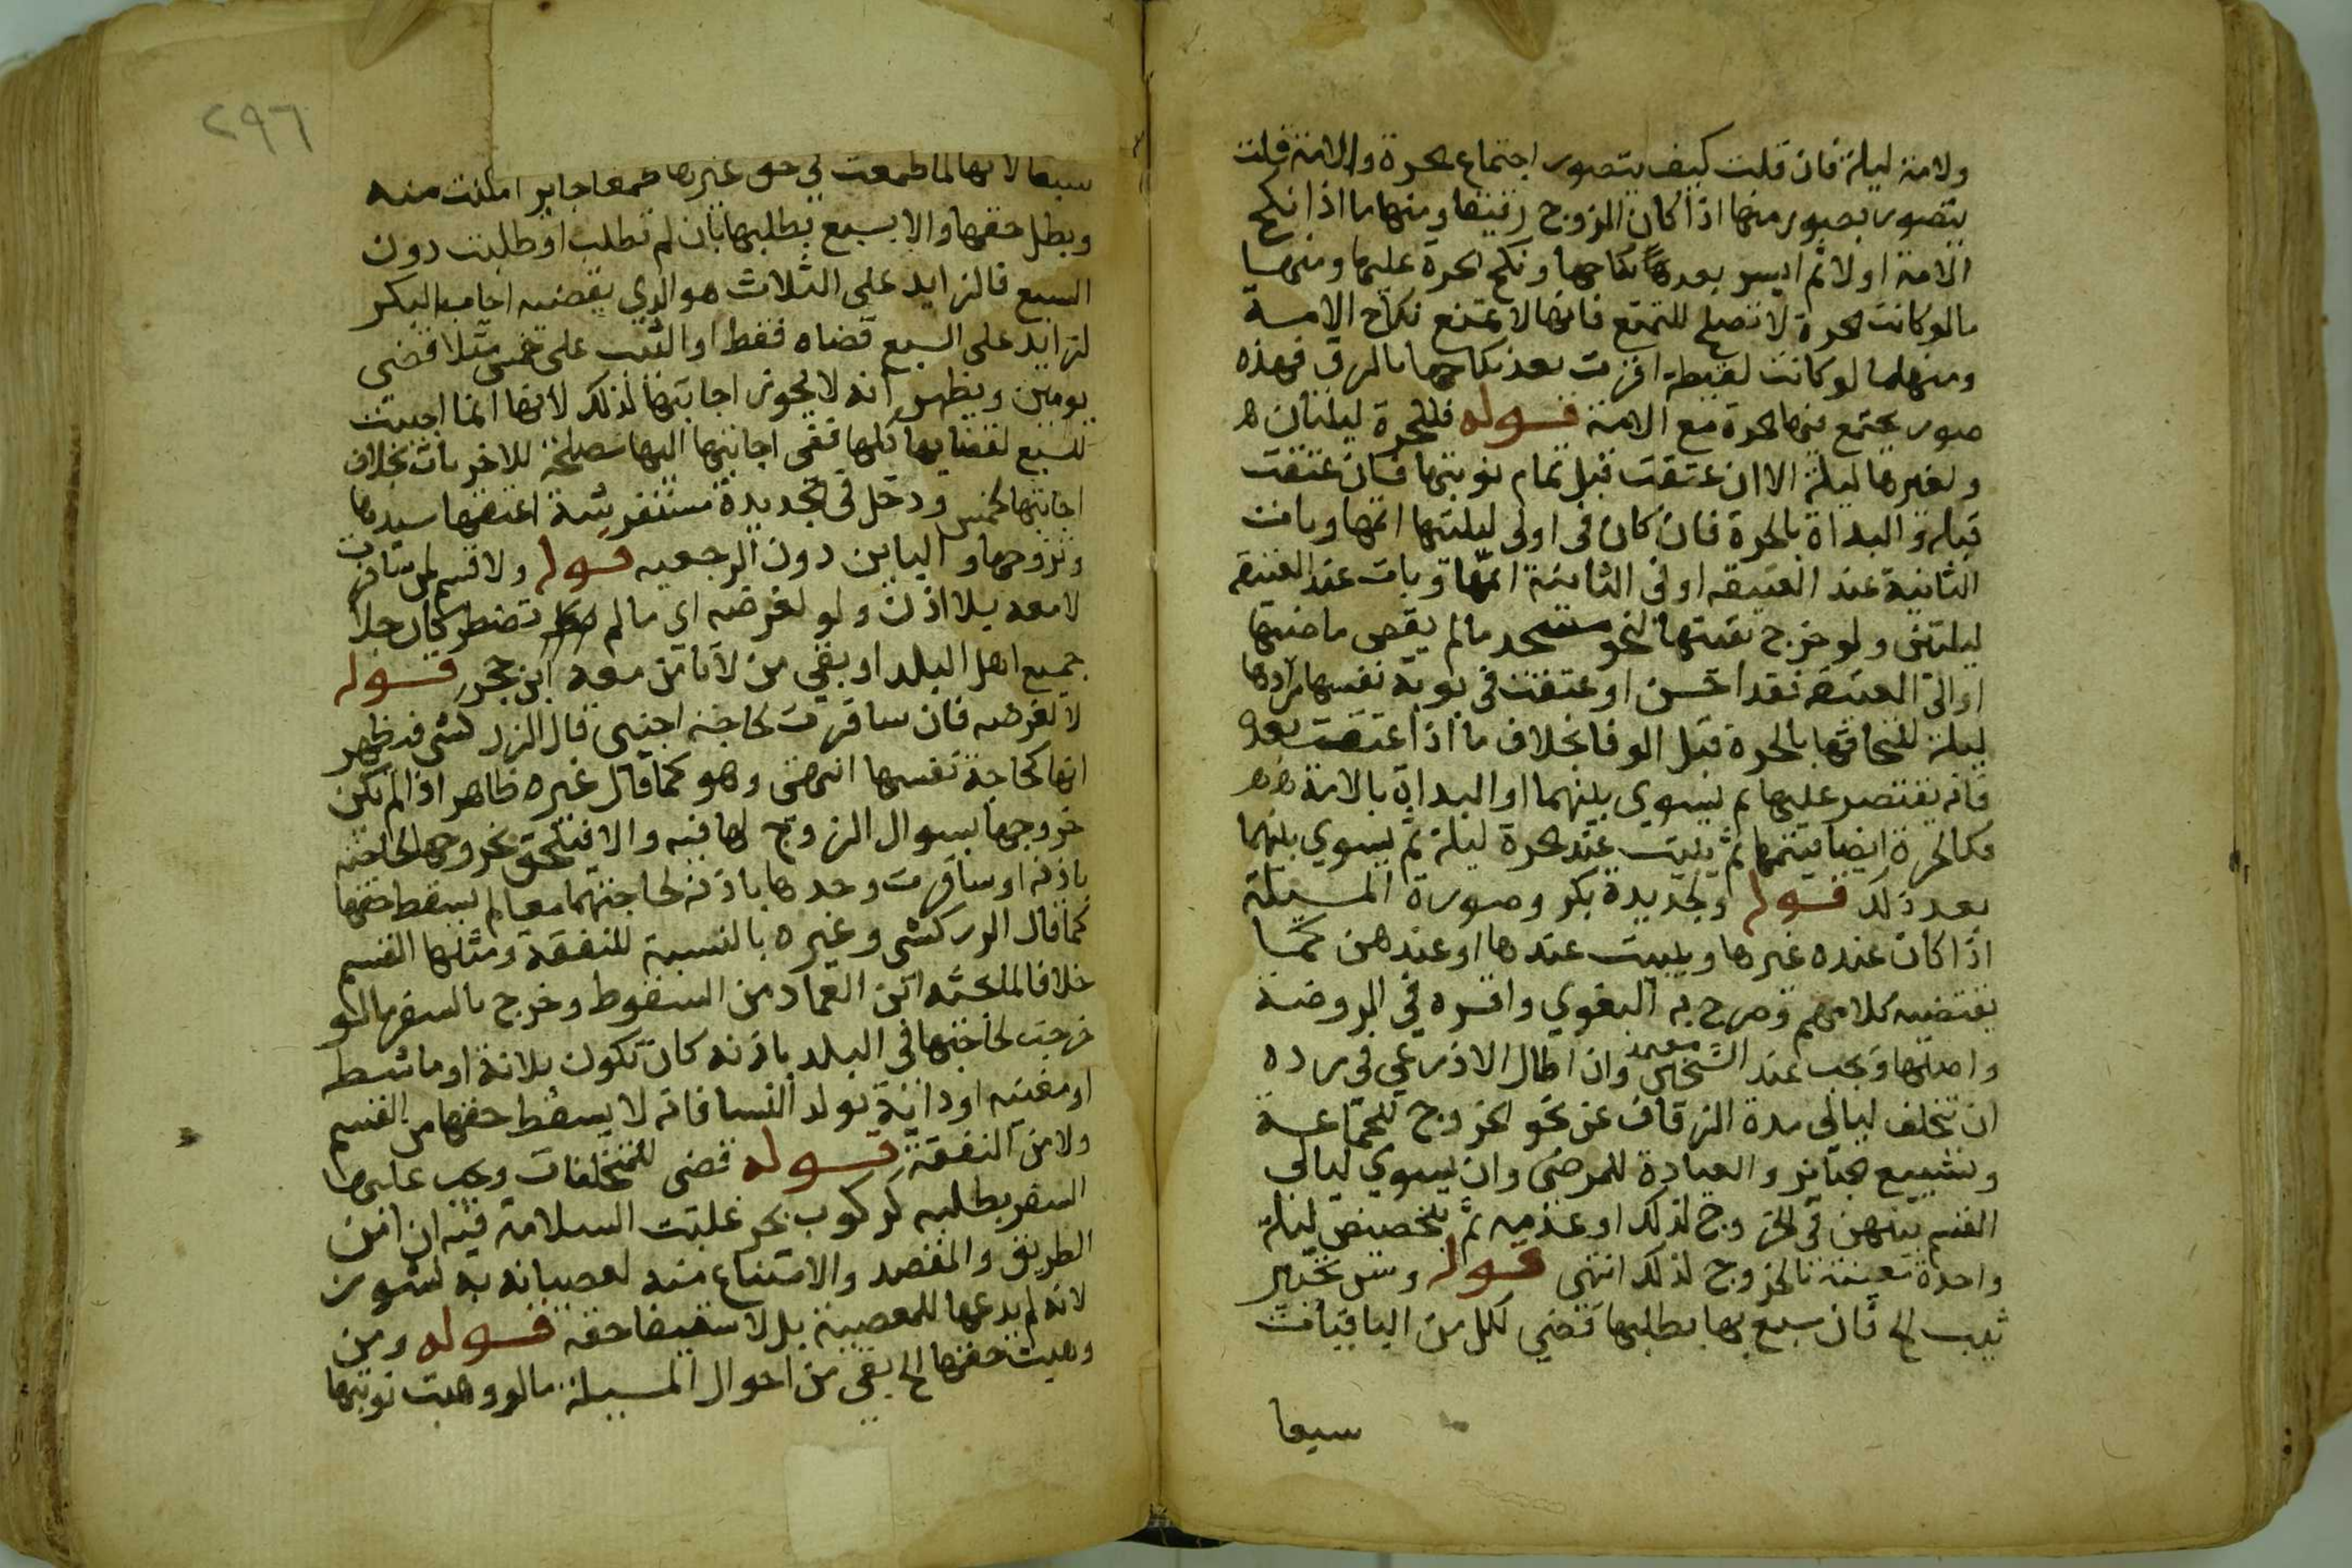 ولامة ليلة فان قلت كيف يتصور اجتماع الحرة والامة قلت
يتصور بصور منها اذا كان الزوج رقيقا ومنها ما اذا نكح
الامة اولا ثم ايسر بعد نكاحها ونكح الحرة عليها ومنها
ما لو كانت الحرة لا تصلح للتمتع فانها لا تمنع نكاح الامة
ومنها ما لو كانت لقيطة اقرت بعد نكاحها بالرق فهذه
صور يجتمع فيها الحرة مع الامة قوله فللحرة ليلتان
ولغيرها ليلة الا ان عتقت قبل تمام نوبتها فان عتقت
قبله والبداة بالحرة فان كان في اولى ليلتيها اتمها وبات
الثانية عند العتيقة او في الثانية اتمها وبات عند العتيقة
ليلتين ولو خرج بقيتها لنحو مسجد ما لم يقض ما ضيها
او الى العتيقة فقد احسن او عتقت في نوبة نفسها زادها
ليلة للتحاقها بالحرة قبل الوفا بخلاف ما اذا عتقت بعد
فانه يقتصر عليها ثم يسوي بينهما او البداة بالامة
فكالحرة ايضا يتمها ثم يبيت عند الحرة ليلة ثم يسوي بينهما
بعد ذلك قوله ولجديدة بكر وصورة المسيلة
اذا كان عنده غيرها ويبيت عندها او عندهن كما
يقتضيه كلامهم وصرح به البغوي واقره في الروضة
واصلها ويجب عند الشيخين معتمد وان اطال الاذرعي في رده
ان تتخلف ليالى مدة الزفاف عن نحو الخروج للجماعة
وتشييع الجنايز والعيادة للمرضى وان يسوي ليالى
القسم بينهن في الخروج لذلك او عدمه ثم بتخصيص ليلة
واحدة معينة بالخروج لذلك انتهى قوله وسن تخيير
ثيب الخ فان سبع بها بطلبها قضي لكل من الباقيات
سبعا
٢٩٦
سبعا لانها لما طمعت في حق غيرها طمعا جايز امكنت منه
وبطل حقها والا يسبع بطلبها بان لم تطلب او طلبت دون
السبع فالزايد على الثلاث هو الذي يقضيه اجابها البكر
لزايد على السبع قضاه فقط او الثيب على خمس مثلا قضي
يومين ويظهر انه لا يجوز اجابتها لذلك لانها انما اجيبت
للسبع لقضايها كلها ففي اجابتها اليها مصلحة للاخريات بخلاف
اجابتها لخمس ودخل في الجديدة مستفرشة اعتقها سيدها
وتزوجها والباين دون الرجعيه قوله ولا قسم لمن سافرت
لا معه بلا اذن ولو لغرضه اي ما لم تضطر كان جلا
جميع اهل البلد او بقي من لا تامن معه ابن حجر قوله
لا لغرضه فان سافرت لحاجة اجنبي قال الزركشي فيظهر
انها كحاجة نفسها انتهى وهو كما قال غيره ظاهر اذا لم يكن
خروجها بسوال الزوج لها فيه والا فيلحق بخروجها لحاجته
باذنه او سافرت وحدها باذنه لحاجتهما معا لم يسقط حقها
كما قال الزركشي وغيره بالنسبة للنفقة ومثلها القسم
خلافا لما بحثه ابن العماد من السقوط وخرج بالسفر ما لو
خرجت لحاجتها في البلد باذنه كان تكون بلانة او ماشطة
او مغنيه او داية تولد النسا فانه لا يسقط حقها من القسم
ولا من النفقة قوله قضى للمتخلفات ويجب عليها
السفر بطلبه لركوب بحر غلبت السلامة فيه ان امن
الطريق والمقصد والامتناع منه لعصيانه به نشوز
لانه لم يدعها للمعصية بل لاستيفا حقه قوله ومن
وهبت حقها الخ بقي من احوال المسيلة ما لو وهبت نوبتها